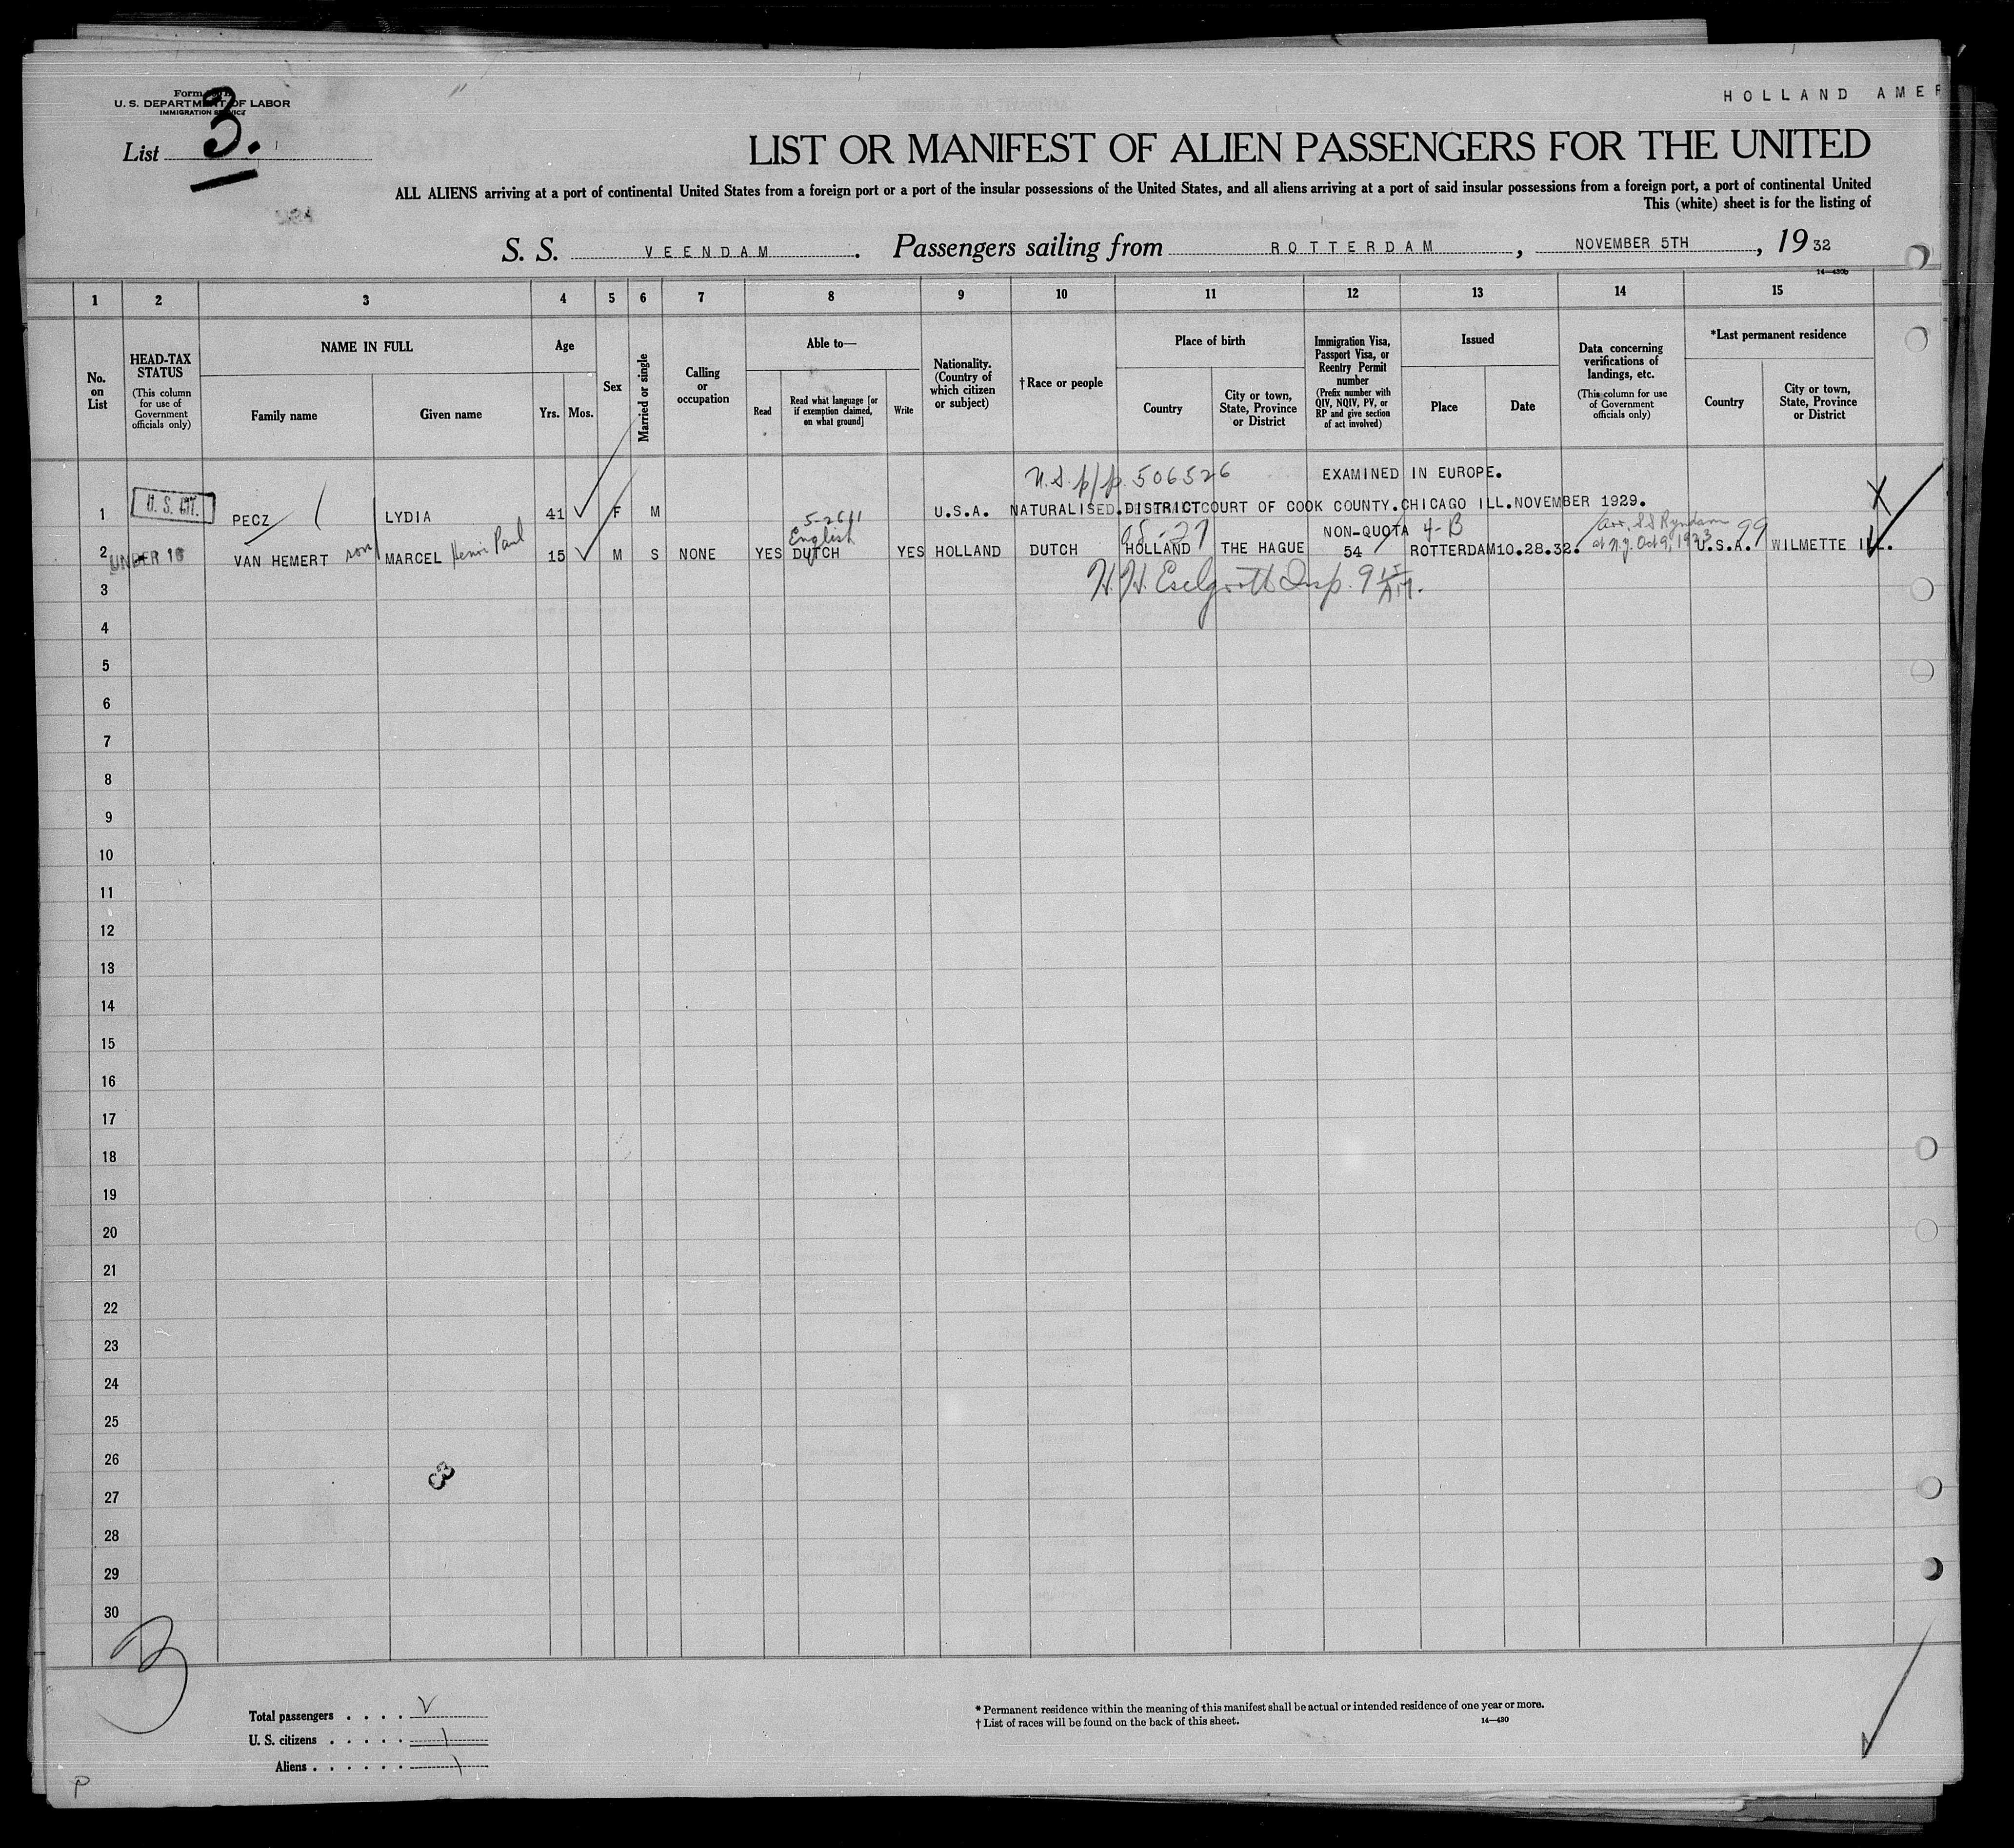 HOLLAND AMER
Form
U. S. DEPARTMENT OF LABOR
IMMIGRATION SERVICE
List 3.
LIST OR MANIFEST OF ALIEN PASSENGERS FOR THE UNITED
ALL ALIENS arriving at a port of continental United States from a foreign port or a port of the insular possessions of the United States, and all aliens arriving at a port of said insular possessions from a foreign port, a port of continental United
This (white) sheet is for the listing of
S. S. VEENDAM. Passengers sailing from ROTTERDAM, NOVEMBER 5TH, 1932
14—430b
1 2 3 4 5 6 7 8 9 10 11 12 13 14 15
No. on List
HEAD-TAX STATUS
(This column for use of Government officials only)
NAME IN FULL
Family name
Given name
Age
Yrs. Mos.
Sex
Married or single
Calling or occupation
Able to—
Read
Read what language [or if exemption claimed, on what ground]
Write
Nationality. (Country of which citizen or subject)
†Race or people
Place of birth
Country
City or town, State, Province or District
Immigration Visa, Passport Visa, or Reentry Permit number
(Prefix number with QIV, NQIV, PV, or RP and give section of act involved)
Issued
Place
Date
Data concerning verifications of landings, etc.
(This column for use of Government officials only)
*Last permanent residence
Country
City or town, State, Province or District
U.S. p/p. 506526 EXAMINED IN EUROPE.
1 U. S. CIT. PECZ LYDIA 41 F M U.S.A. NATURALISED.DISTRICTCOURT OF COOK COUNTY.CHICAGO ILL.NOVEMBER 1929. X
English NON-QUOTA 4-B arr. SS Ryndam 99
2 UNDER 16 VAN HEMERT son MARCEL Henri Paul 15 M S NONE YES DUTCH YES HOLLAND DUTCH HOLLAND THE HAGUE 54 ROTTERDAM 10.28.32. at N.Y. Oct 9, 1923 U.S.A. WILMETTE ILL.
3
4
5
6
7
8
9
10
11
12
13
14
15
16
17
18
19
20
21
22
23
24
25
26
27
28
29
30
Total passengers . . . .
U. S. citizens . . . . . 1
Aliens . . . . . . 1
* Permanent residence within the meaning of this manifest shall be actual or intended residence of one year or more.
† List of races will be found on the back of this sheet.
14—430
P